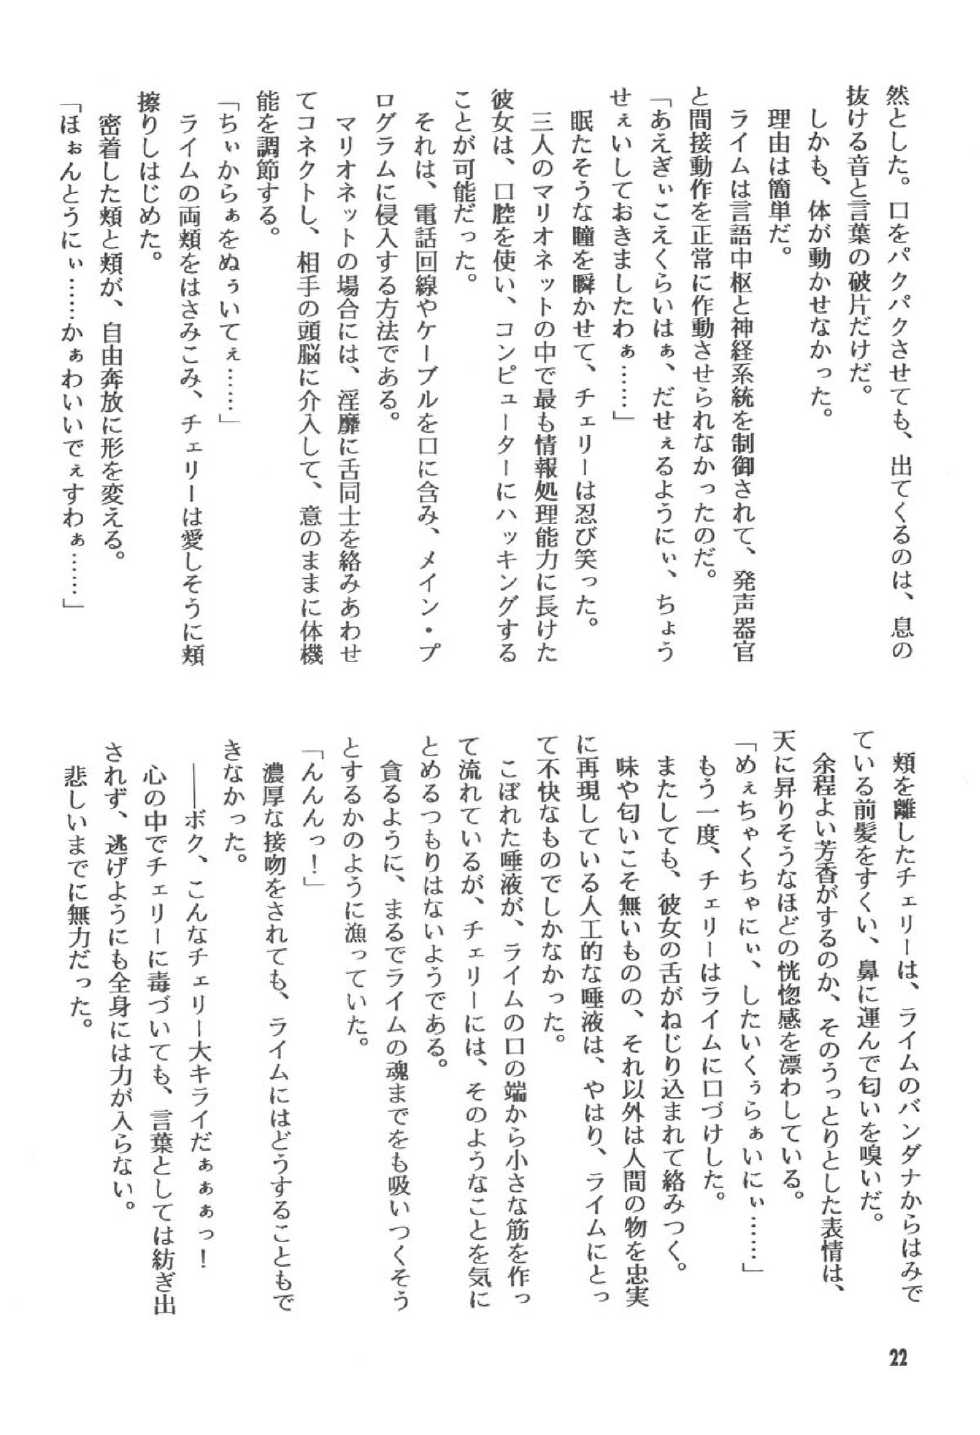 然とした。口をパクパクさせても、出てくるのは、息の
抜ける音と言葉の破片だけだ。
しかも、体が動かせなかった。
理由は簡単だ。
ライムは言語中枢と神経系統を制御されて、発声器官
と間接動作を正常に作動させられなかったのだ。
「あえぎぃこえくらいはぁ、だせぇるようにぃ、ちょう
せぇいしておきましたわぁ……」
眠たそうな瞳を瞬かせて、チェリーは忍び笑った。
三人のマリオネットの中で最も情報処理能力に長けた
彼女は、口腔を使い、コンピューターにハッキングする
ことが可能だった。
それは、電話回線やケーブルを口に含み、メイン・プ
ログラムに侵入する方法である。
マリオネットの場合には、淫靡に舌同士を絡みあわせ
てコネクトし、相手の頭脳に介入して、意のままに体機
能を調節する。
「ちぃからぁをぬぅいてぇ……」
ライムの両頬をはさみこみ、チェリーは愛しそうに頬
擦りしはじめた。
密着した頬と頬が、自由奔放に形を変える。
「ほぉんとうにぃ……かぁわいいでぇすわぁ……」
頬を離したチェリーは、ライムのバンダナからはみで
ている前髪をすくい、鼻に運んで匂いを嗅いだ。
余程よい芳香がするのか、そのうっとりとした表情は、
天に昇りそうなほどの恍惚感を漂わしている。
「めぇちゃくちゃにぃ、したいくぅらぁいにぃ……」
もう一度、チェリーはライムに口づけした。
またしても、彼女の舌がねじり込まれて絡みつく。
味や匂いこそ無いものの、それ以外は人間の物を忠実
に再現している人工的な唾液は、やはり、ライムにとっ
て不快なものでしかなかった。
こぼれた唾液が、ライムの口の端から小さな筋を作っ
て流れているが、チェリーには、そのようなことを気に
とめるつもりはないようである。
貪るように、まるでライムの魂までをも吸いつくそう
とするかのように漁っていた。
「んんんっ！」
濃厚な接吻をされても、ライムにはどうすることもで
きなかった。
――ボク、こんなチェリー大キライだぁぁぁっ！
心の中でチェリーに毒づいても、言葉としては紡ぎ出
されず、逃げようにも全身には力が入らない。
悲しいまでに無力だった。
22